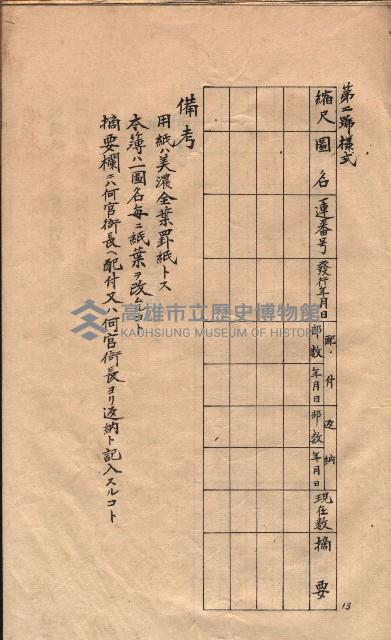 第二號樣式
縮尺
圖名
一連番号
發行年月日
配付
部数
年月日
返納
部数
年月日
現在数
摘要
備考
用紙ハ美濃全葉罫紙トス
本簿ハ一圖名每ニ紙葉ヲ改ムコト
摘要欄ニハ何官衙長ヘ配付又ハ何官衙長ヨリ返納ト記入スルコト
13
高雄市立歷史博物館
KAOHSIUNG MUSEUM OF HISTORY